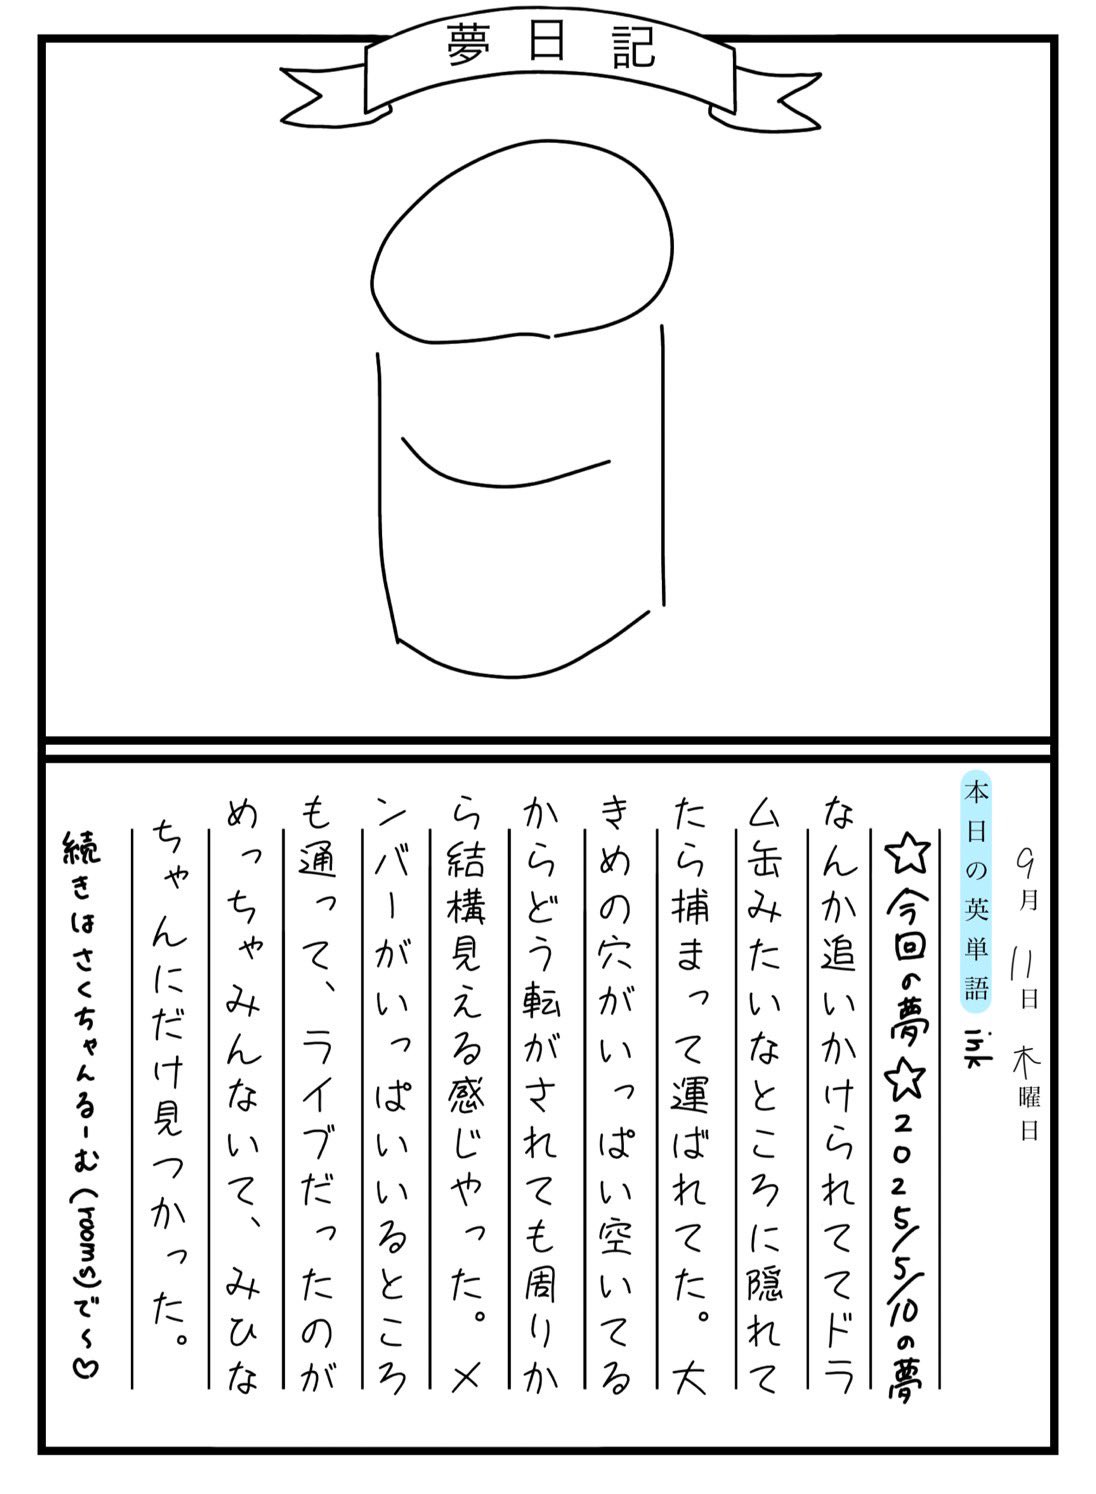 夢日記
9月11日木曜日
本日の英単語 ink
☆今回の夢☆2025/5/10の夢
なんか追いかけられててドラ
ム缶みたいなところに隠れて
たら捕まって運ばれてた。大
きめの穴がいっぱい空いてる
からどう転がされても周りか
ら結構見える感じやった。メ
ンバーがいっぱいいるところ
も通って、ライブだったのが
めっちゃみんないて、みひな
ちゃんにだけ見つかった。
続きはさくちゃんるーむ(rooms)で〜♡